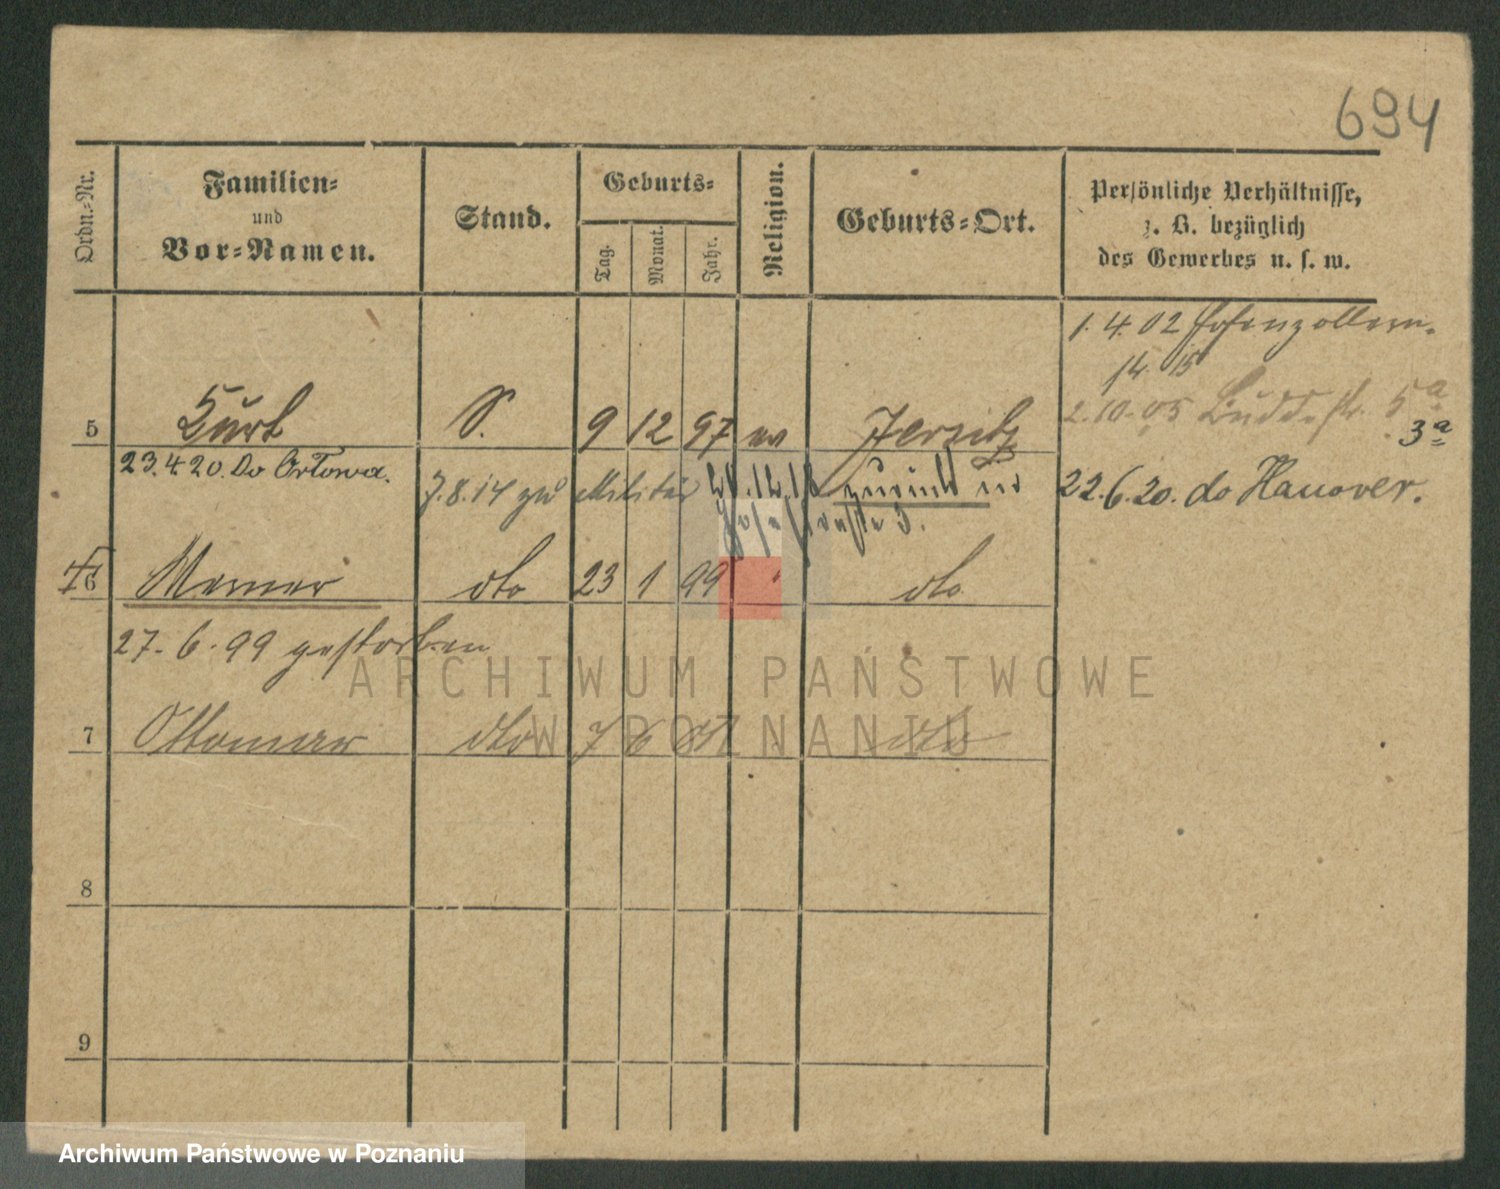 694
Ordn.-Nr.
Familien-
und
Vor-Namen.
Stand.
Geburts-
Tag.
Monat.
Jahr.
Religion.
Geburts-Ort.
Persönliche Verhältnisse,
z. B. bezüglich
des Gewerbes u. s. w.
1. 4. 02 Hohenzollern-
14 15
2. 10. 05 Buddestr. 5a
3a
5 Kurt S. 9 12 97 ev Jersitz
23.4.20. Do Ortowa.
7.8.14 zu Militär 21.12.18 zurück in
22.6.20. do Hanover.
6 Werner dto 23 1 99 " dto
27. 6. 99 gestorben
7 Ottomar dto 7 6 dto
8
9
ARCHIWUM PAŃSTWOWE
W POZNANIU
Archiwum Państwowe w Poznaniu